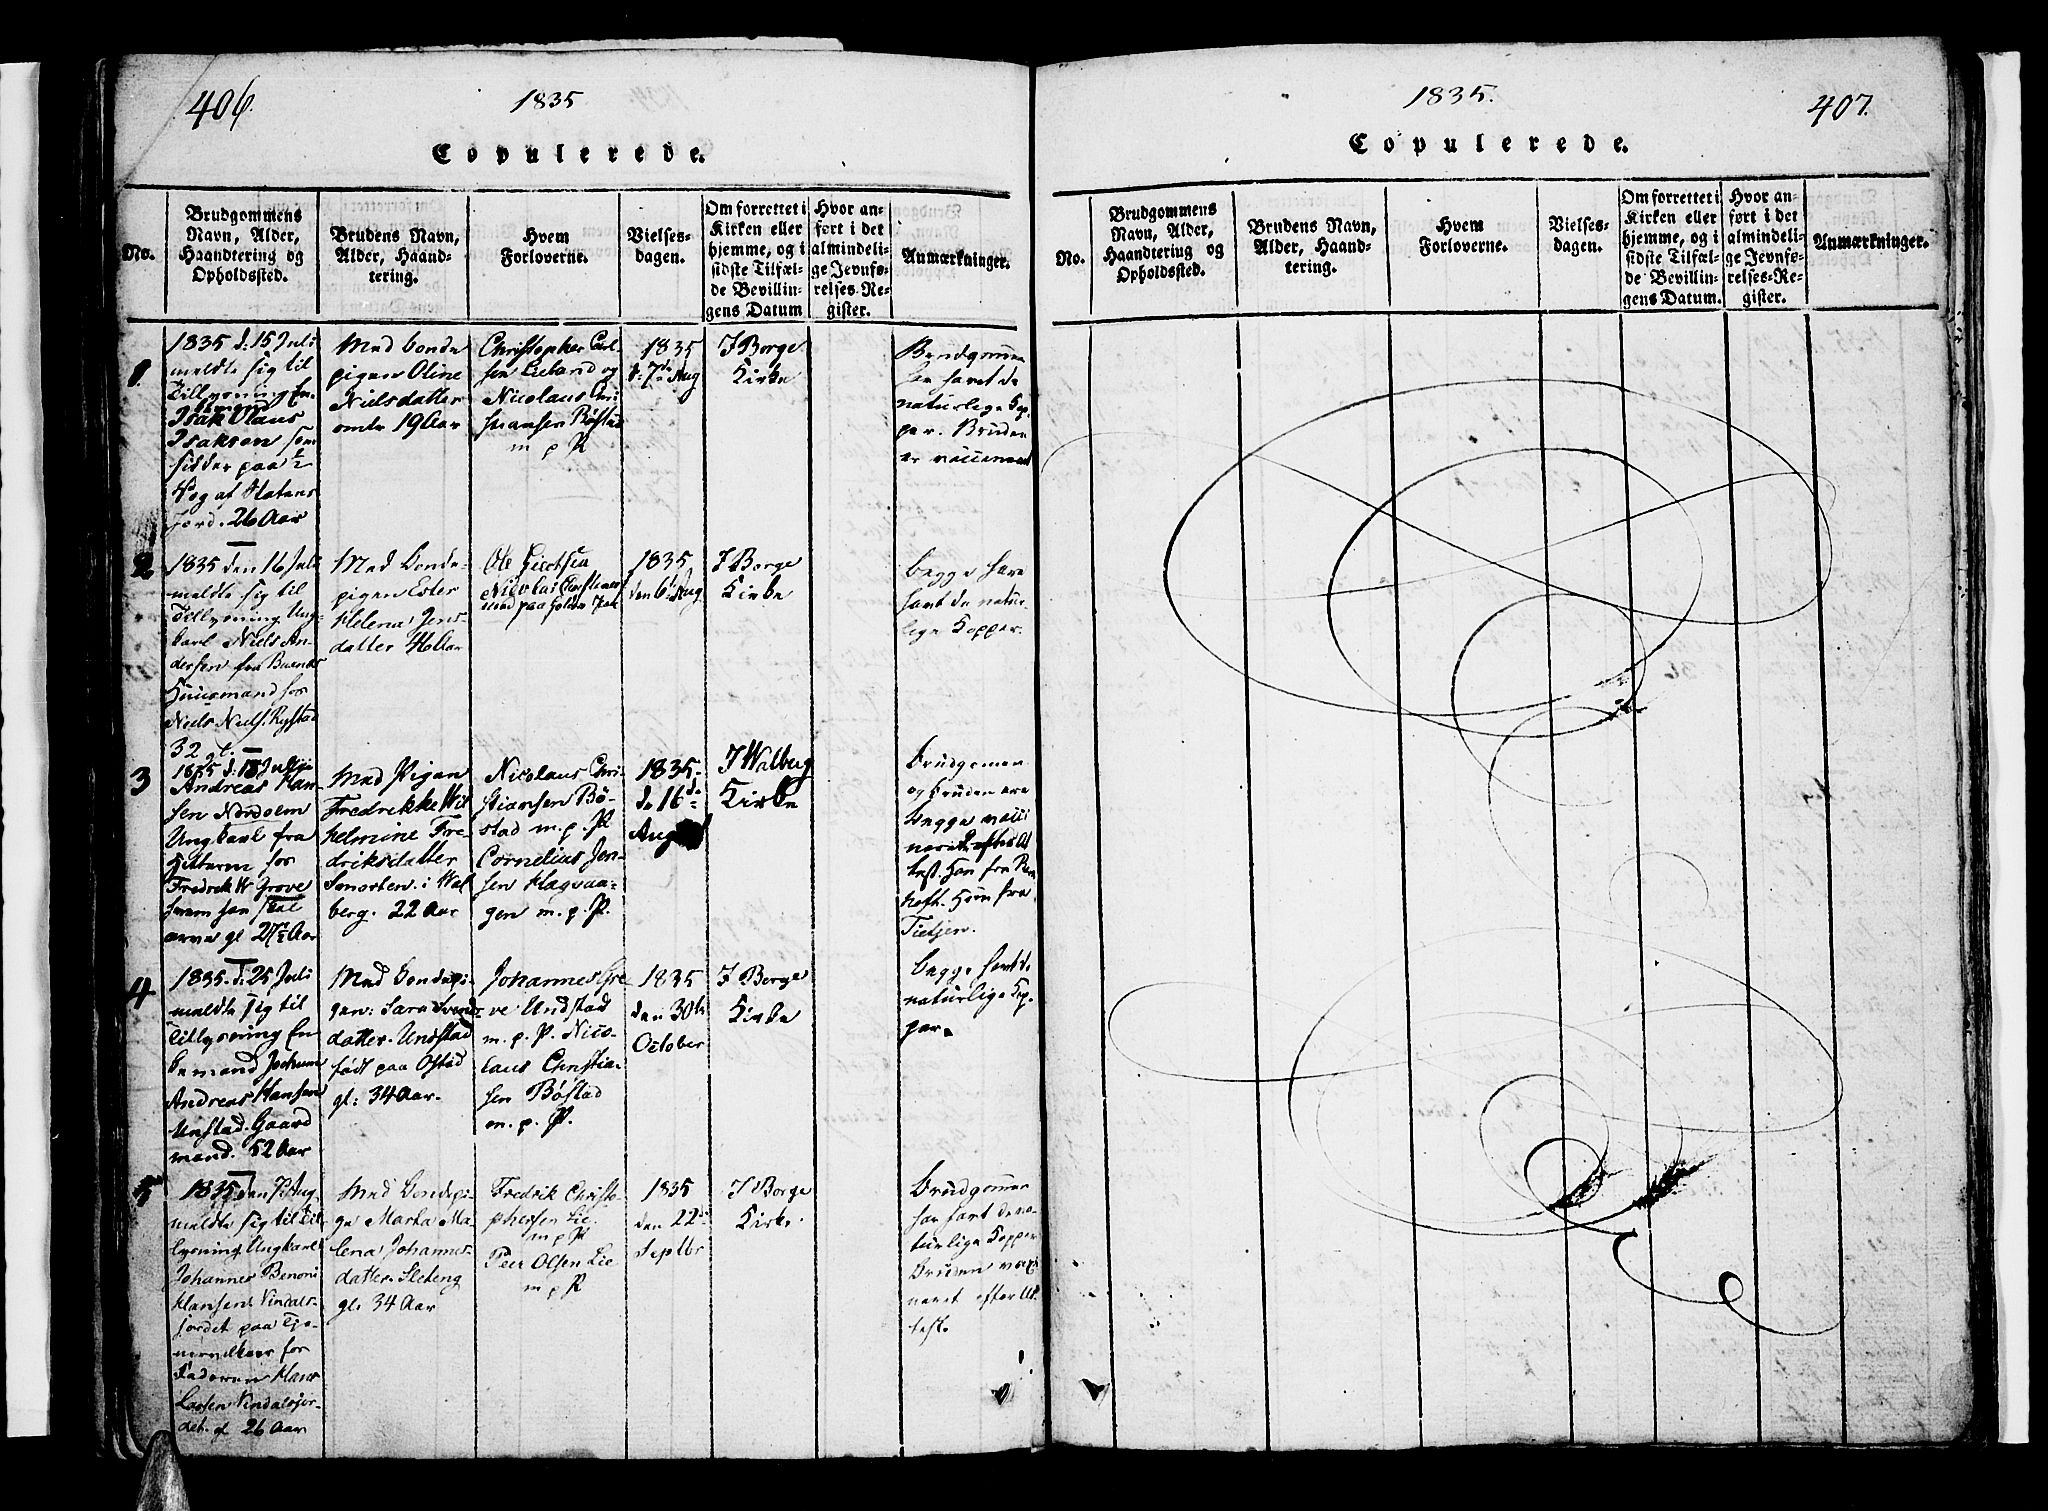 406.
1835
Copulerede.
No.
Brudgommens
Navn, Alder,
Haandtering og
Opholdssted.
Brudens Navn,
Alder, Haand-
tering.
Hvem
Forloverne.
Vielses-
dagen.
Om forrettet i
Kirken eller
hjemme, og i
sidste Tilfæl-
de Bevillin-
gens Datum
Hvor an-
ført i det
almindeli-
ge Jevnfø-
relses-Re-
gister.
Anmærkninger.
1.
1835 d: 15 Juli
meldte sig til
Tillysning
Isak Olaus
Isaksen som
sidder paa ½
Vog af Statens
Jord. 26 Aar
Med bonde
pigen Oline
Nielsdatter
19 Aar
Christopher Carl-
sen Lieland og
Nicolaus Chri
stiansen Bøstad
m p P
1835
d: 7de Aug
I Borge
Kirke
Brudgomen
har havt de
naturlige Kop-
per. Bruden
er vaccineret
2
1835 den 16 Juli
meldte sig til
Tillysning Ung-
karl Niels An-
dersen fra Buenæs
Huusmand hos
Niels Niels. Rystad
32
Med Bonde-
pigen Ester
Helena Jens-
datter 46 Aar
Ole
Nicolai Christensen
1835
den 6 Aug
I Borge
Kirke
begge have
havt de natur-
lige Kopper.
3
1835 d: 18 Juli
Andreas Han-
sen Nordolm
Ungkarl fra
Hitteren hos
Fredrik W Grove
hvem han skal
arve gl 27½ Aar
Med Pigen
Fredrikke Wil
helmine Fre-
driksdatter
i Wal
berg. 22 Aar
Nicolaus Chri-
stiansen Bø-
stad m. p. P.
Cornelius Jen-
sen Hagvaa-
gen m. p. P.
1835-
d: 16de
August
I Walberg
Kirke
brudgomen
og bruden ere
begge vacci
At
test. Han fra
hoft. Hun fra
Tietjen.
4
1835. d: 25 Juli
meldte sig til
Tillysning En-
kemand Jochum
Andreas Hansen
Unstad. Gaard
mand. 52 Aar
Med Bondepi-
gen: Sara Svends
datter. Undstad
født paa Ostad
gl: 34 Aar.
Johannes Gre
ve Undstad
m. p. P. Nico-
laus Christia-
sen Bøstad
m. p. P.
1835
den 30te
October
I Borge
Kirke
begge havt de
naturlige Kop-
per.
5
1835 den 7 Aug.
meldte sig til Til-
lysning Ungkarl
Johannes Benoni
Hansen Vindals-
jordet paa Tje-
for
Faderen Hans
Larsen Vindalsjor-
det. gl 26 Aar
Med Bondepi-
ge Marta Ma-
lena Johannes-
datter. Sletteng
gl. 34 Aar
Fredrik Christo-
phersen Lie.
m p P
Peer Olsen Lie
m p P
1835
den 22de
Septbr
I Borge
Kirke.
brudgomen
har havt de na-
turlige Kopper
bruden vacci
neret efter At
test.
1835.
407.
Copulerede.
No.
Brudgommens
Navn, Alder,
Haandtering og
Opholdssted.
Brudens Navn,
Alder, Haand-
tering.
Hvem
Forloverne.
Vielses-
dagen.
Om forrettet i
Kirken eller
hjemme, og i
sidste Tilfæl-
de Bevillin-
gens Datum.
Hvor an-
ført i det
almindeli-
ge Jevnfø-
relses-Re-
gister.
Anmærkninger.